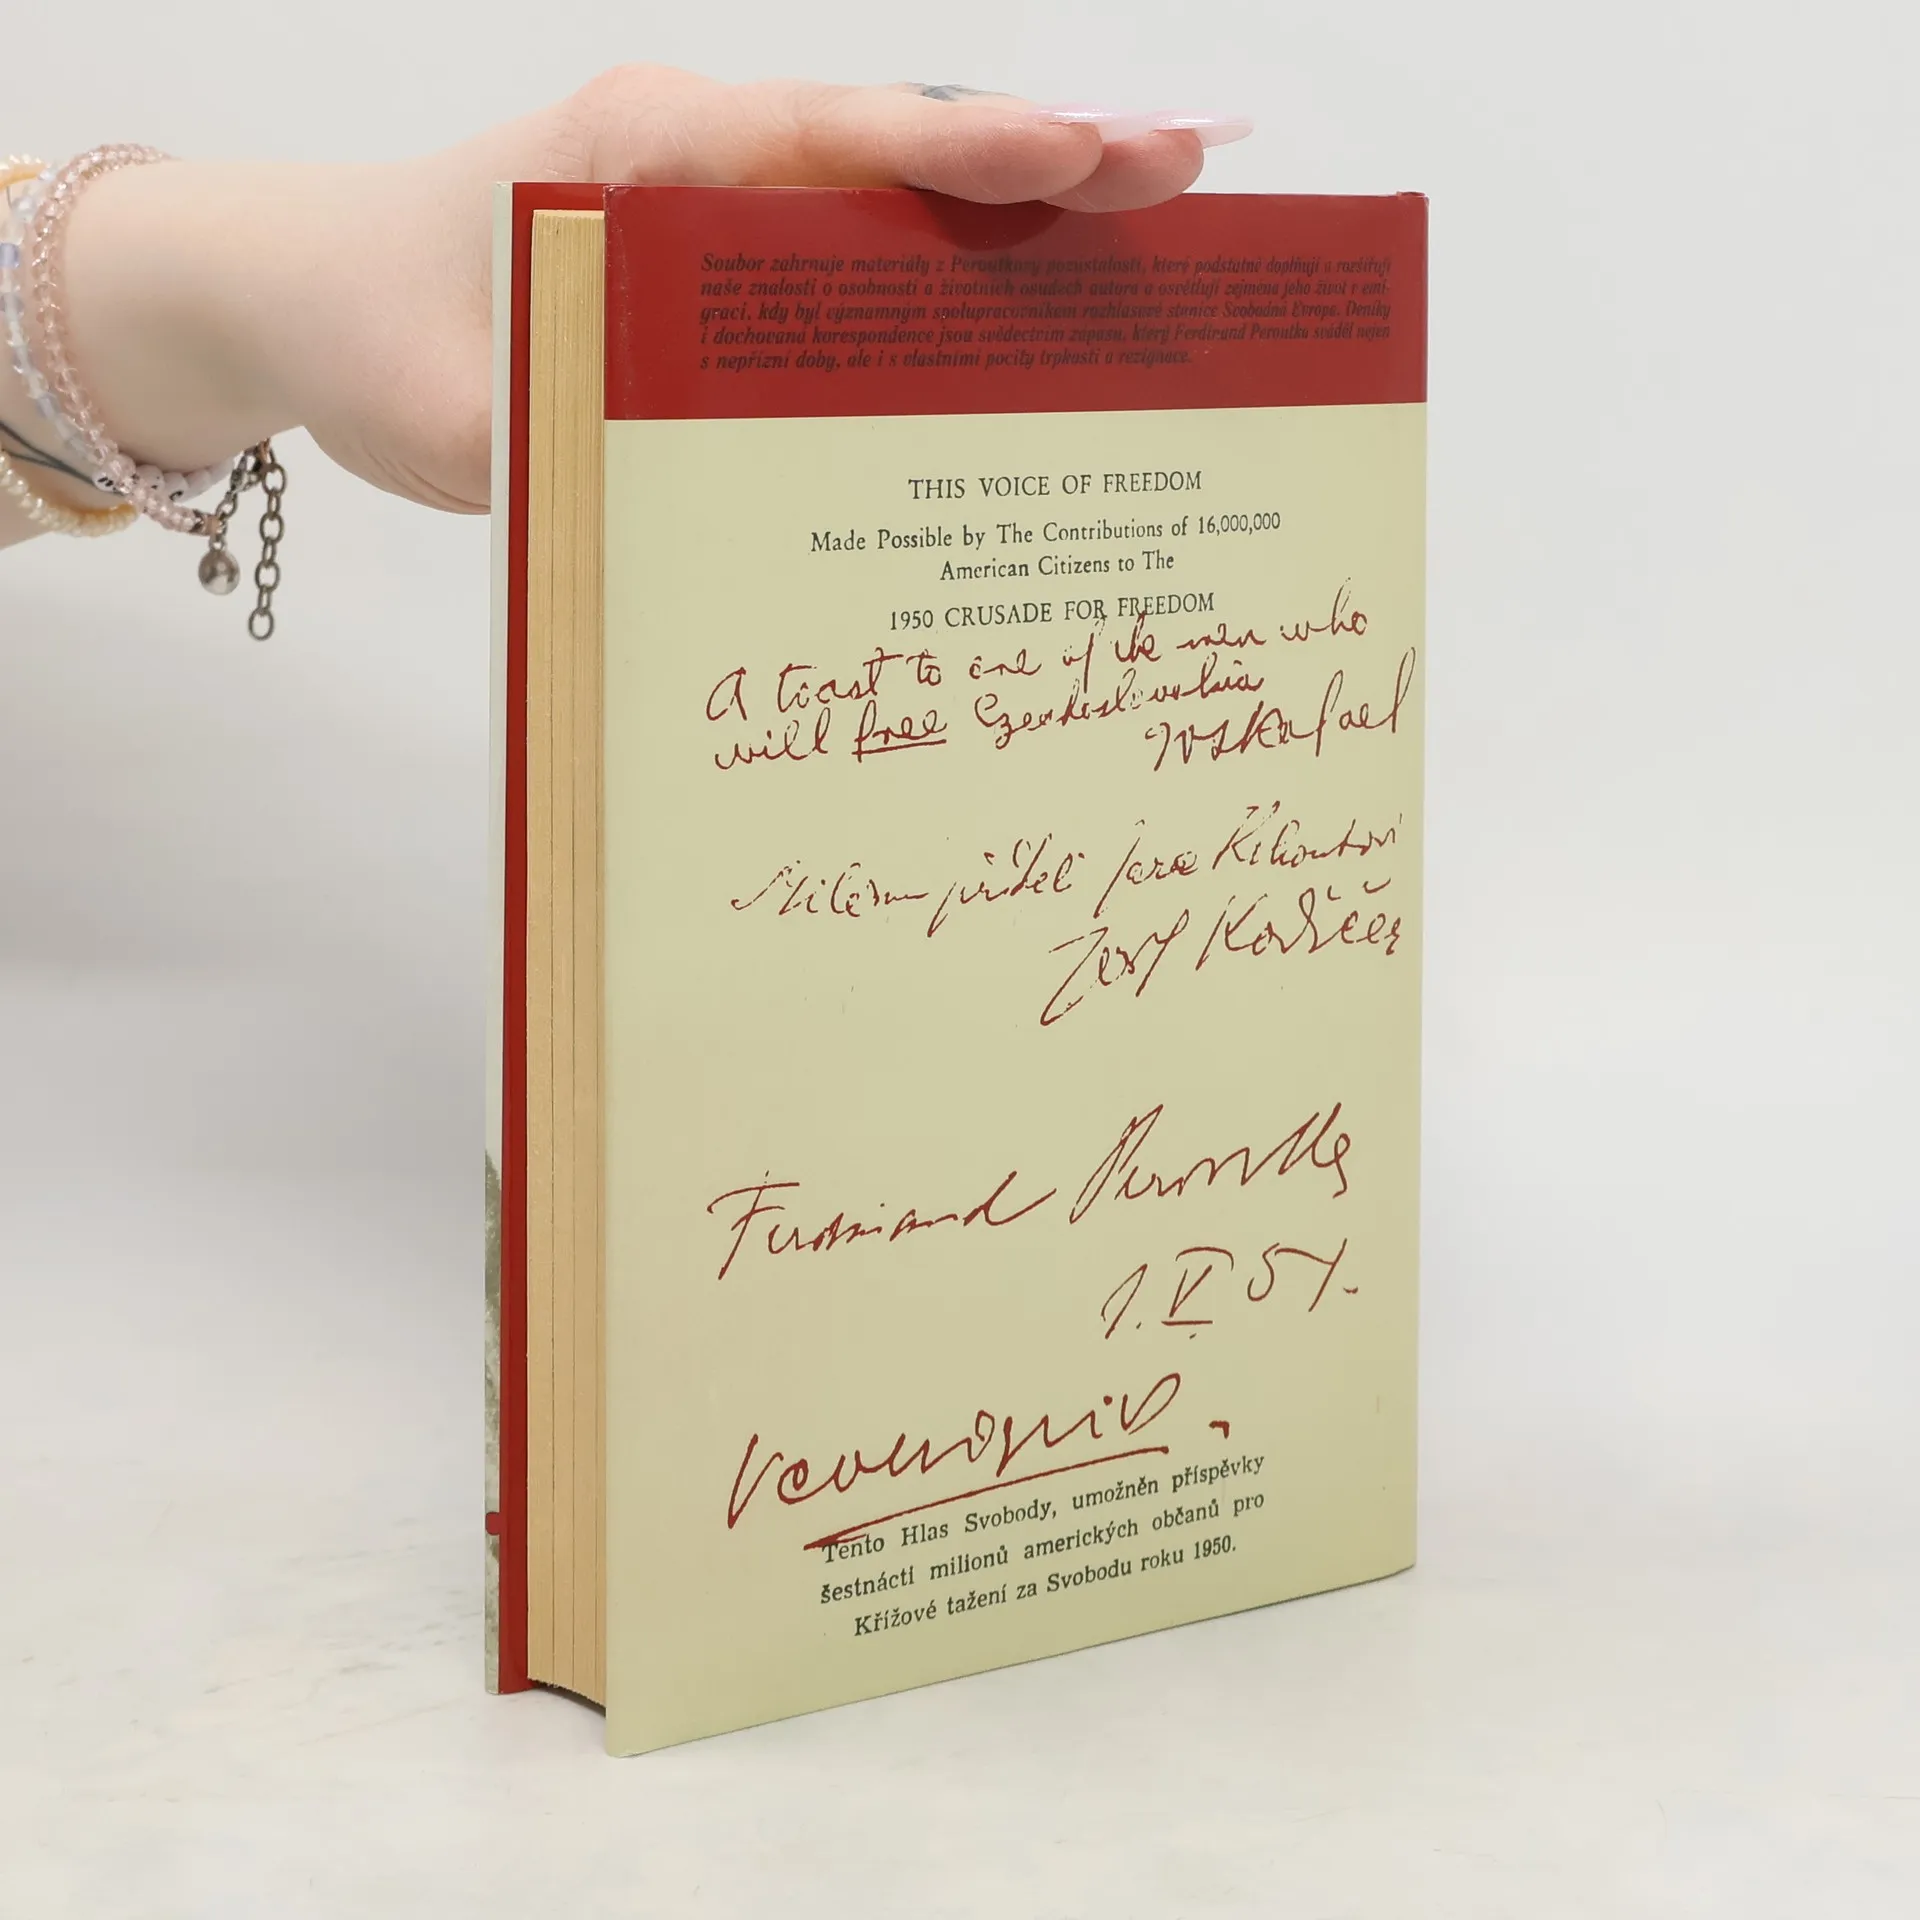 Soubor zahrnuje materiály z Peroutkovy pozůstalosti, které podstatně doplňují a rozšiřují
naše znalosti o osobnosti a životních osudech autora a osvětlují zejména jeho život v emi-
graci, kdy byl významným spolupracovníkem rozhlasové stanice Svobodná Evropa. Deníky
i dochovaná korespondence jsou svědectvím zápasu, který Ferdinand Peroutka sváděl nejen
s nepřízní doby, ale i s vlastními pocity trpkosti a rezignace.
THIS VOICE OF FREEDOM
Made Possible by The Contributions of 16,000,000
American Citizens to The
1950 CRUSADE FOR FREEDOM
A toast to one of the men who
will free Czechoslovakia
Milému příteli
Josef Kodíček
Ferdinand Peroutka
1. V. 51.
Tento Hlas Svobody, umožněn příspěvky
šestnácti milionů amerických občanů pro
Křížové tažení za Svobodu roku 1950.